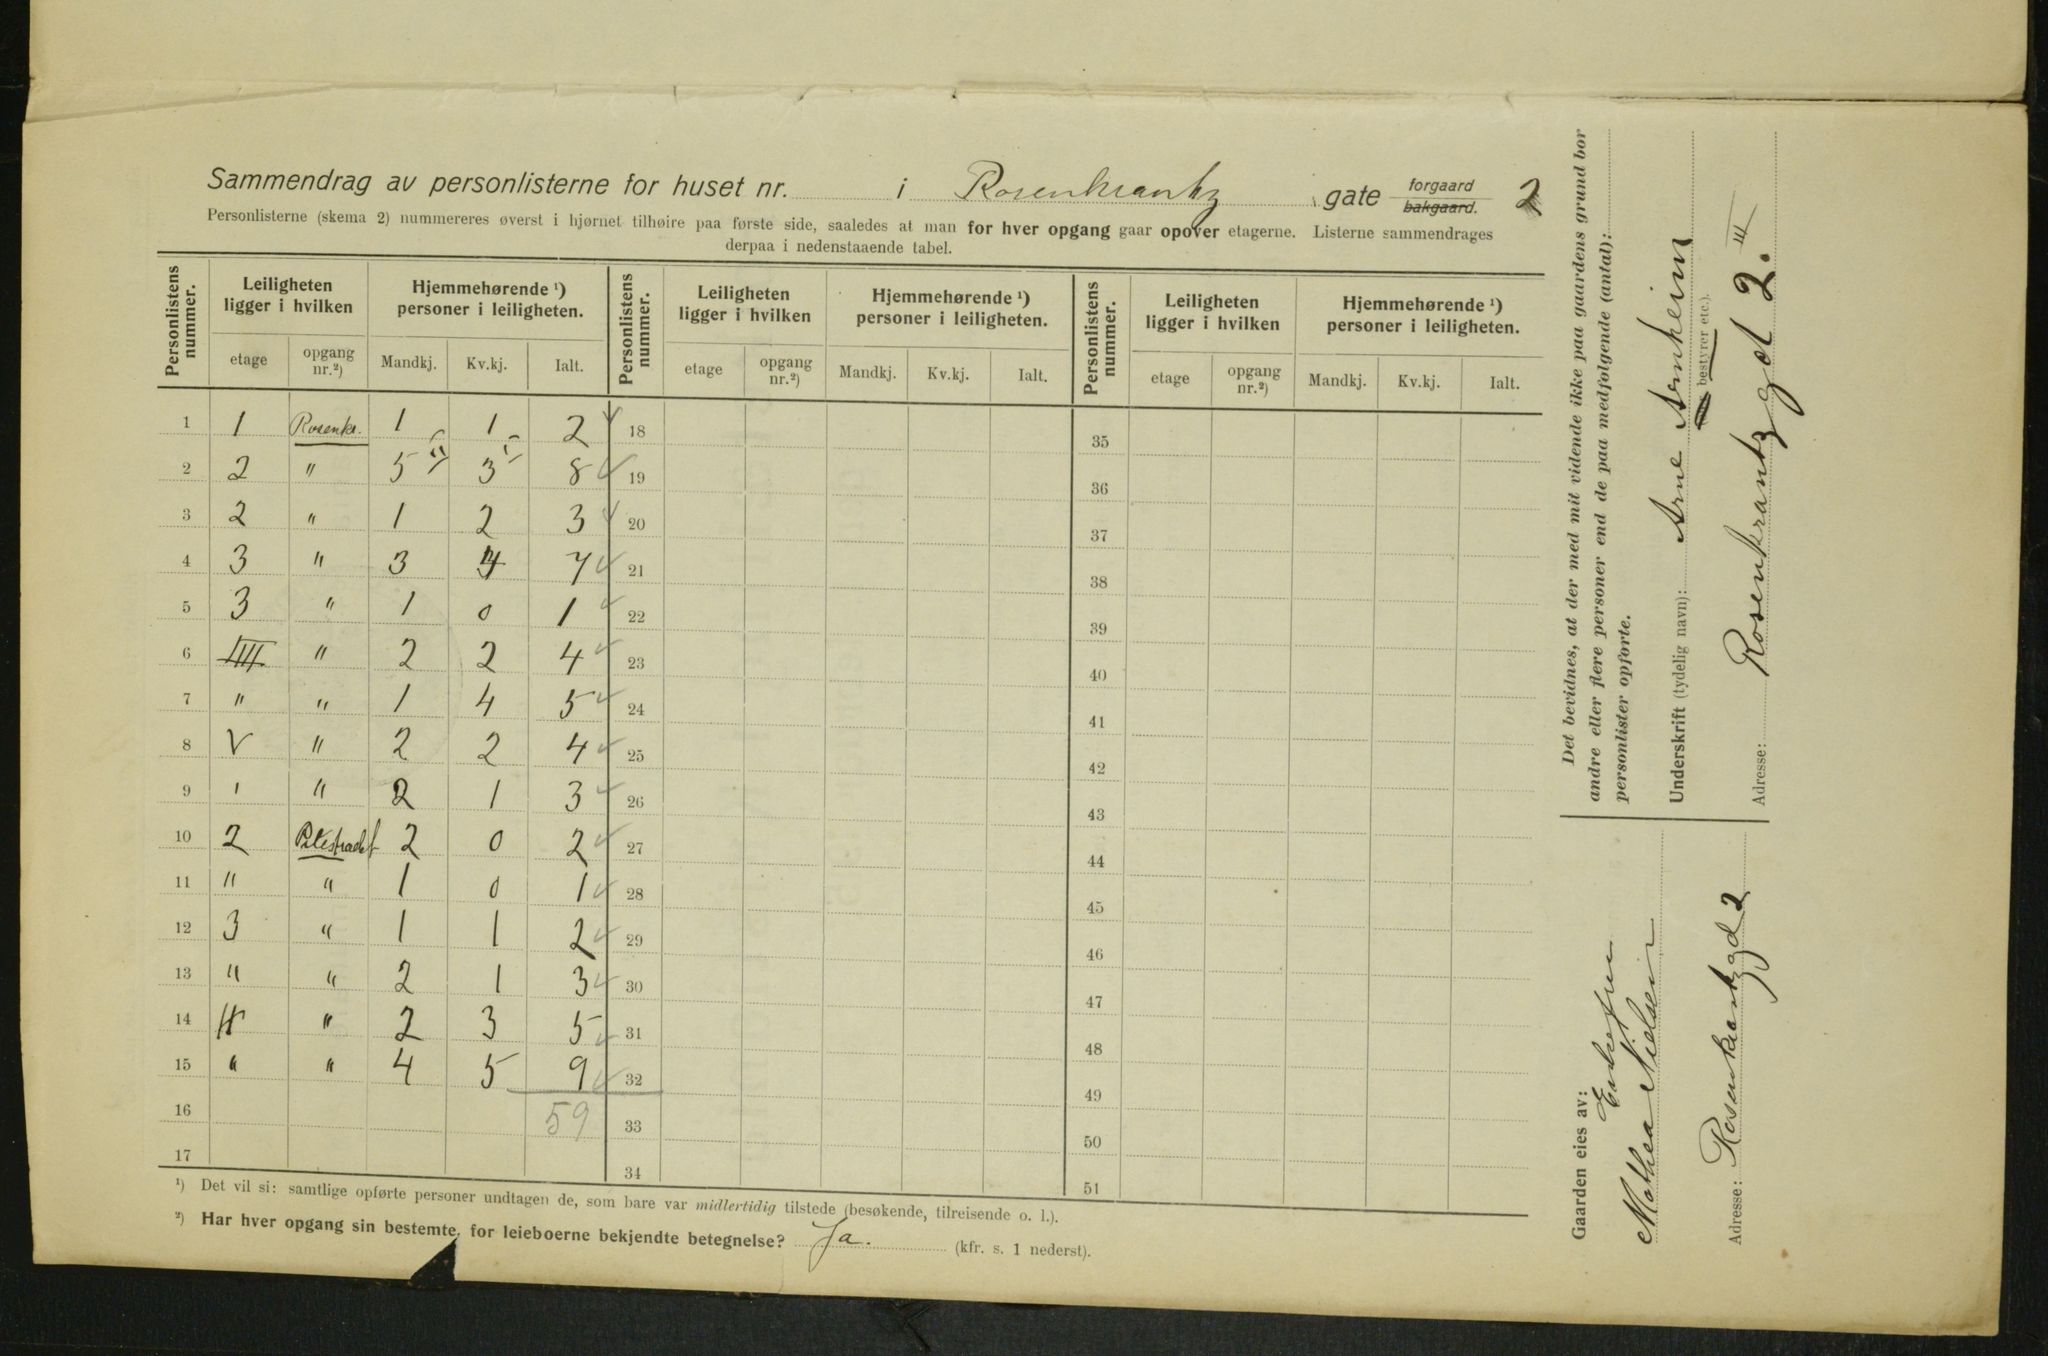 Sammendrag av personlisterne for huset nr. i Rosenkrantz gate forgaard bakgaard. 2
Personlisterne (skema 2) nummereres øverst i hjørnet tilhøire paa første side, saaledes at man for hver opgang gaar opover etagerne. Listerne sammendrages
derpaa i nedenstaaende tabel.
Personlistens nummer. Leiligheten ligger i hvilken Hjemmehørende ¹) personer i leiligheten. Personlistens nummer. Leiligheten ligger i hvilken Hjemmehørende ¹) personer i leiligheten. Personlistens nummer. Leiligheten ligger i hvilken Hjemmehørende ¹) personer i leiligheten.
etage opgang nr.²) Mandkj. Kv.kj. Ialt. etage opgang nr.²) Mandkj. Kv.kj. Ialt. etage opgang nr.²) Mandkj. Kv.kj. Ialt.
1 1 Rosenkr. 1 1 2 18 35
2 2 " 5 3 8 19 36
3 2 " 1 2 3 20 37
4 3 " 3 4 7 21 38
5 3 " 1 0 1 22 39
6 IIII " 2 2 4 23 40
7 " " 1 4 5 24 41
8 V " 2 2 4 25 42
9 " " 2 1 3 26 43
10 2 2 0 2 27 44
11 " " 1 0 1 28 45
12 3 " 1 1 2 29 46
13 " " 2 1 3 30 47
14 4 " 2 3 5 31 48
15 " " 4 5 9 32 49
16 59 33 50
17 34 51
¹) Det vil si: samtlige opførte personer undtagen de, som bare var midlertidig tilstede (besøkende, tilreisende o. l.).
²) Har hver opgang sin bestemte, for leieboerne bekjendte betegnelse? Ja. (kfr. s. 1 nederst).
Det bevidnes, at der med mit vidende ikke paa gaardens grund bor
andre eller flere personer end de paa medfølgende (antal):
personlister opførte.
Underskrift (tydelig navn): Arne Arnheim
bestyrer etc.).
Adresse: Rosenkrantzgt 2. III
Gaarden eies av: Enkefru
Mathea Nielsen
Adresse: Rosenkrantzgd 2